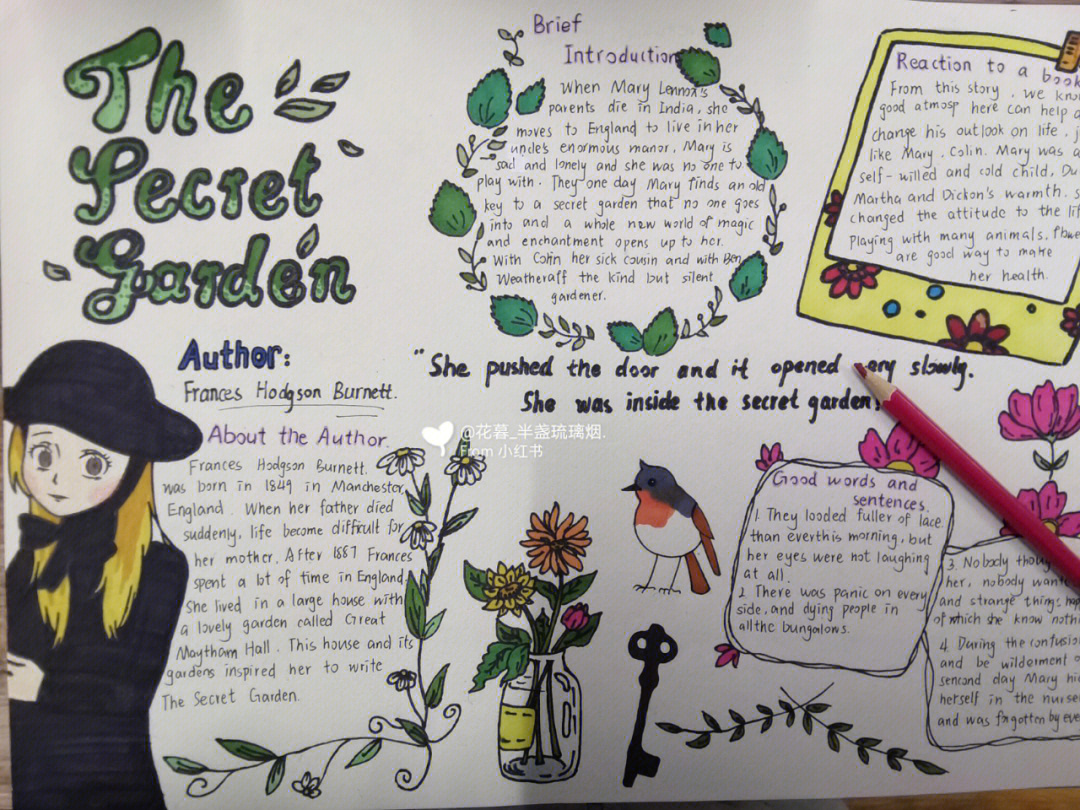 The
Secret
Garden
Brief
Introduction
When Mary Lennox's
parents die in India, she
moves to England to live in her
uncle's enormous manor. Mary is
sad and lonely and she was no one to
play with. They one day Mary finds an old
key to a secret garden that no one goes
into and a whole new world of magic
and enchantment opens up to her.
With Colin her sick cousin and with Ben
Weatheraff the kind but silent
gardener.
Reaction to a book
From this story, we know
good atmosp here can help a
change his outlook on life, j
like Mary. Colin. Mary was a
self-willed and cold child. Du
Martha and Dickon's warmth. s
changed the attitude to the lif
Playing with many animals. flowe
are good way to make
her health.
Author:
Frances Hodgson Burnett.
About the Author.
Frances Hodgson Burnett.
was born in 1849 in Manchester,
England. When her father died
suddenly, life become difficult for
her mother. After 1887 Frances
spent a lot of time in England,
She lived in a large house with
a lovely garden called Great
Maytham Hall. This house and its
gardens inspired her to write
The Secret Garden.
"She pushed the door and it opened ery slowly.
She was inside the secret garden!
@花暮_半盏琉璃烟.
From 小红书
Good words and
sentences.
1 They looded fuller of lace
than everthis morning, but
her eyes were not laughing
at all.
2 There was panic on every
side, and dying people in
allthc bungalows.
3. Nobody thoug
her, nobody wante
and strange things hap
of which she know nothi
4. During the confusio
and be wilderment o
sencond day Mary hid
herself in the nurse
and was forgotten by eve